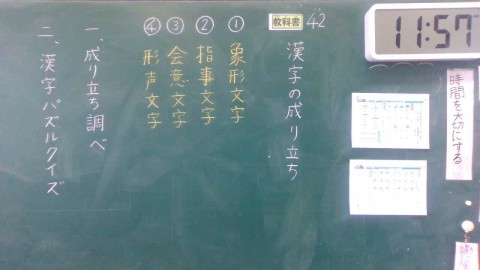 11:57
教科書 42
漢字の成り立ち
① 象形文字
② 指事文字
③ 会意文字
④ 形声文字
一、成り立ち調べ
二、漢字パズルクイズ
時間を大切にする